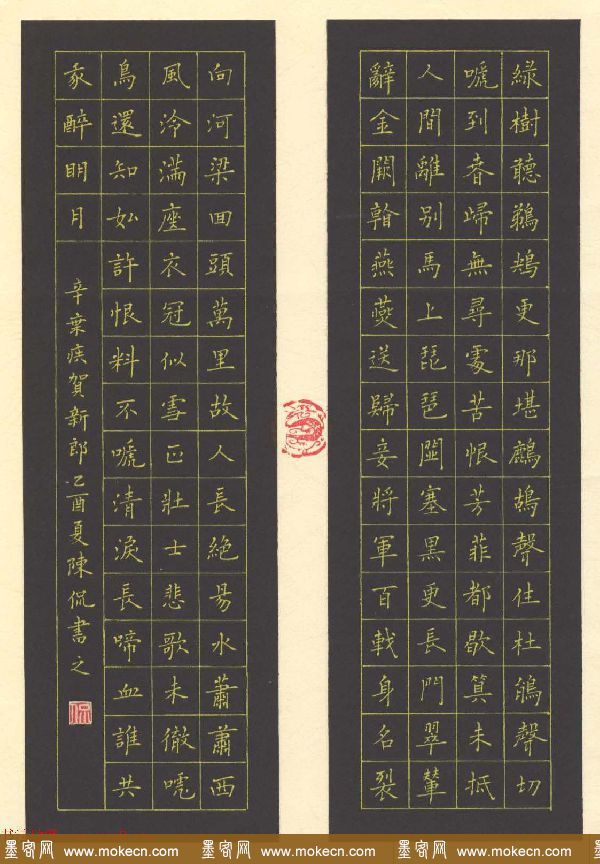 綠樹聽鵜鴂更那堪鷓鴣聲住杜鵑聲切
嗁到春歸無尋處苦恨芳菲都歇算未抵
人間離別馬上琵琶關塞黑更長門翠輦
辭金闕看燕燕送歸妾將軍百戰身名裂
向河梁回頭萬里故人長絕易水蕭蕭西
風冷滿座衣冠似雪正壯士悲歌未徹嗁
鳥還知如許恨料不嗁清淚長啼血誰共
我醉明月
辛棄疾賀新郎乙酉夏陳侃書之
侃
墨客网 www.mokecn.com 墨客网 www.mokecn.com 墨客网 www.mokecn.com